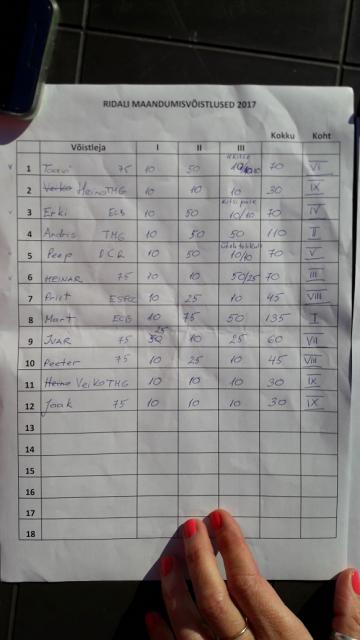 RIDALI MAANDUMISVÕISTLUSED 2017
Võistleja I II III Kokku Koht
1 75 10 50 70 VI
2 Heino TMG 10 10 10 30 IX
3 Erki ECB 10 50 10/10 70 IV
4 Andris TMG 10 50 50 110 II
5 Peep DCR 10 50 10/10 70 V
6 HEINAR 75 10 10 50/25 70 III
7 Priit 10 25 10 45 VIII
8 Mart ECB 10 75 50 135 I
9 IVAR 75 25 10 25 60 VII
10 Peeter 75 10 25 10 45 VIII
11 Heino Veiko TMG 10 10 10 30 IX
12 Jaak 75 10 10 10 30 IX
13
14
15
16
17
18